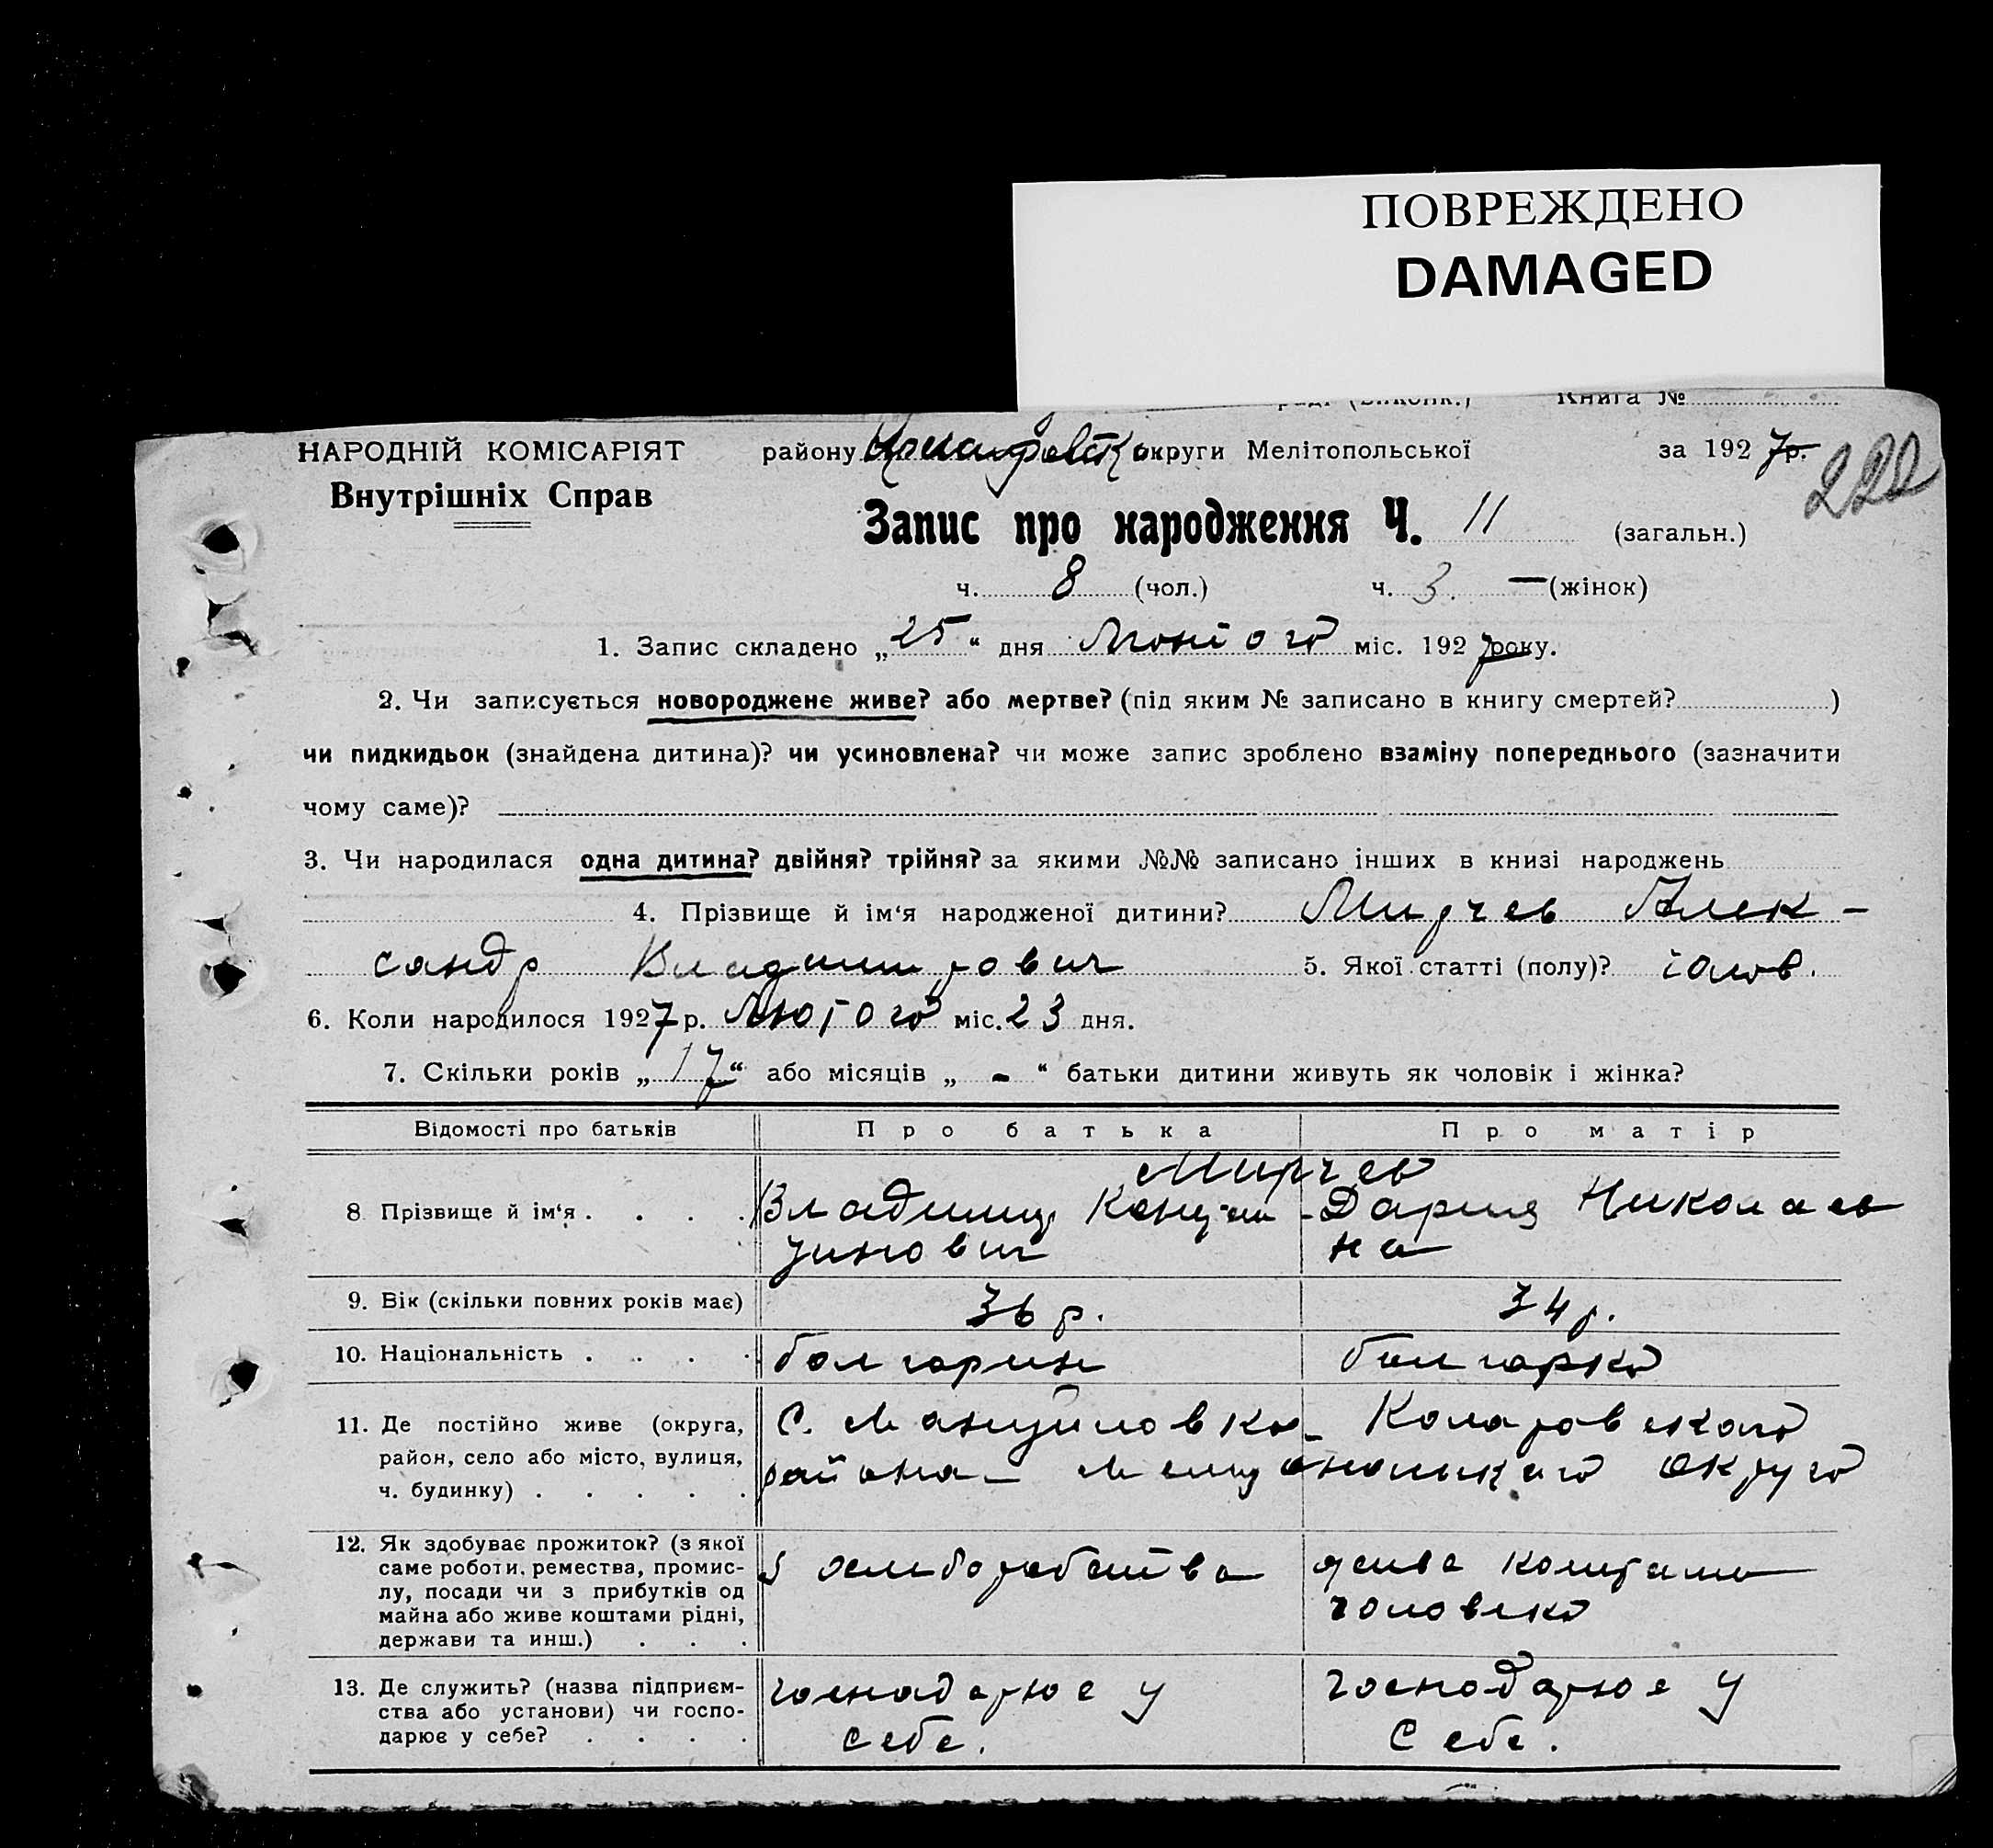 ПОВРЕЖДЕНО
DAMAGED
Книга №
НАРОДНІЙ КОМІСАРІЯТ району округи Мелітопольської за 1927р. 222
Внутрішніх Справ
Запис про народження Ч. 11 (загальн.)
ч. 8 (чол.) ч. 3. — (жінок)
1. Запис складено „25“ дня Лютого міс. 1927 року.
2. Чи записується новороджене живе? або мертве? (під яким № записано в книгу смертей? )
чи пидкидьок (знайдена дитина)? чи усиновлена? чи може запис зроблено взаміну попереднього (зазначити
чому саме)?
3. Чи народилася одна дитина? двійня? трійня? за якими №№ записано інших в книзі народжень
4. Прізвище й ім‘я народженої дитини? Мирчев Алек-
сандр Владимирович 5. Якої статті (полу)? чолов.
6. Коли народилося 1927 р. Лютого міс. 23 дня.
7. Скільки років „17“ або місяців „ - “ батьки дитини живуть як чоловік і жінка?
Відомості про батьків Про батька Про матір
Мирчев
8 Прізвище й ім‘я . . . . Владимир Констан- Дария Николаев
тинович на
9. Вік (скільки повних років має) 36 р. 34 р.
10. Національність . . . . болгарин болгарка
11. Де постійно живе (округа, С. Мануйловка Коларовского
район, село або місто, вулиця, района Мелитопольского округа
ч. будинку) . . . . .
12. Як здобуває прожиток? (з якої
саме роботи, ремества, промис- з сельб живе коштами
лу, посади чи з прибутків од чоловека
майна або живе коштами рідні,
держави та инш.) . . .
13. Де служить? (назва підприєм- господарює у господарює у
ства або установи) чи госпо- себе. себе.
дарює у себе? . . . .